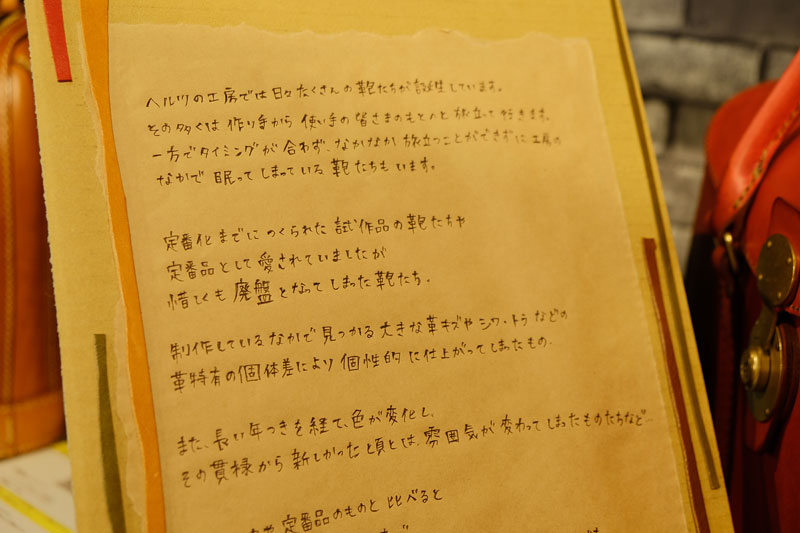 ヘルツの工房では日々たくさんの鞄たちが誕生しています。
その多くは作り手から使い手の皆さまのもとへと旅立って行きます。
一方でタイミングが合わず、なかなか旅立つことができずに工房の
なかで眠ってしまっている鞄たちもいます。
定番化までにつくられた試作品の鞄たちや
定番品として愛されていましたが
惜しくも廃盤となってしまった鞄たち。
制作しているなかで見つかる大きな革キズやシワ・トラなどの
革特有の個体差により個性的に仕上がってしまったもの。
また、長い年つきを経て、色が変化し、
その貫禄から新しかった頃とは、雰囲気が変わってしまったものたちなど…
定番品のものと比べると